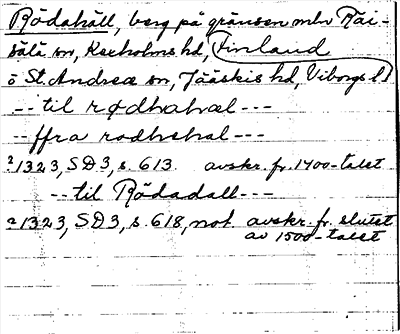 Rödahäll, berg på gränsen mln Räi-
sälä sn, Kexholms hd, Finland
o St. Andreæ sn, Jääskis hd, Viborgs l)
-- til rødhahæl ---
-- ffra rodhehal ---
1323, SD3, s. 613. avskr. fr. 1400-talet
-- til Rödadall ---
1323, SD3, s. 618, not. avskr. fr. slutet
av 1500-talet